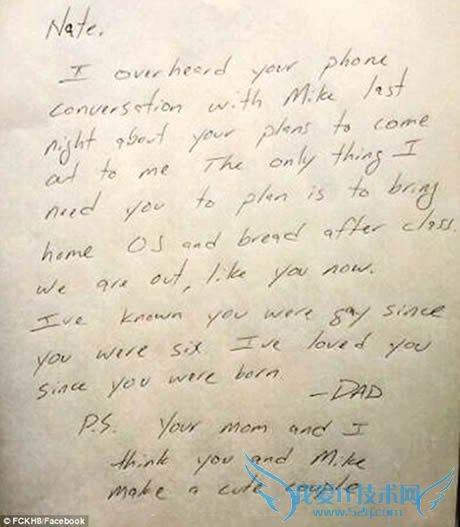 Nate,
I overheard your phone
conversation with Mike last
night about your plans to come
out to me The only thing I
need you to plan is to bring
home OJ and bread after class.
we are out, like you now.
I've known you were gay since
you were six I've loved you
since you were born
-DAD
P.S. Your mom and I
think you and Mike
make a cute couple
我爱IT技术网
© FCKH8/Facebook